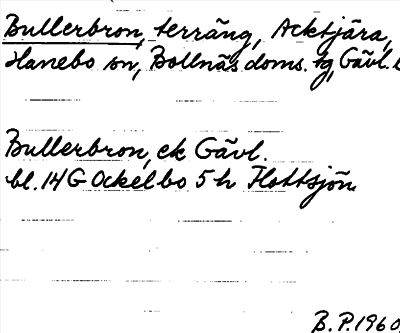 Bullerbron, terräng, Acktjära,
Hanebo sn, Bollnäs doms. tg, Gävl. l
Bullerbron, ek Gävl.
bl. 14 G Ockelbo 5 h Flottsjön
B.P. 1960